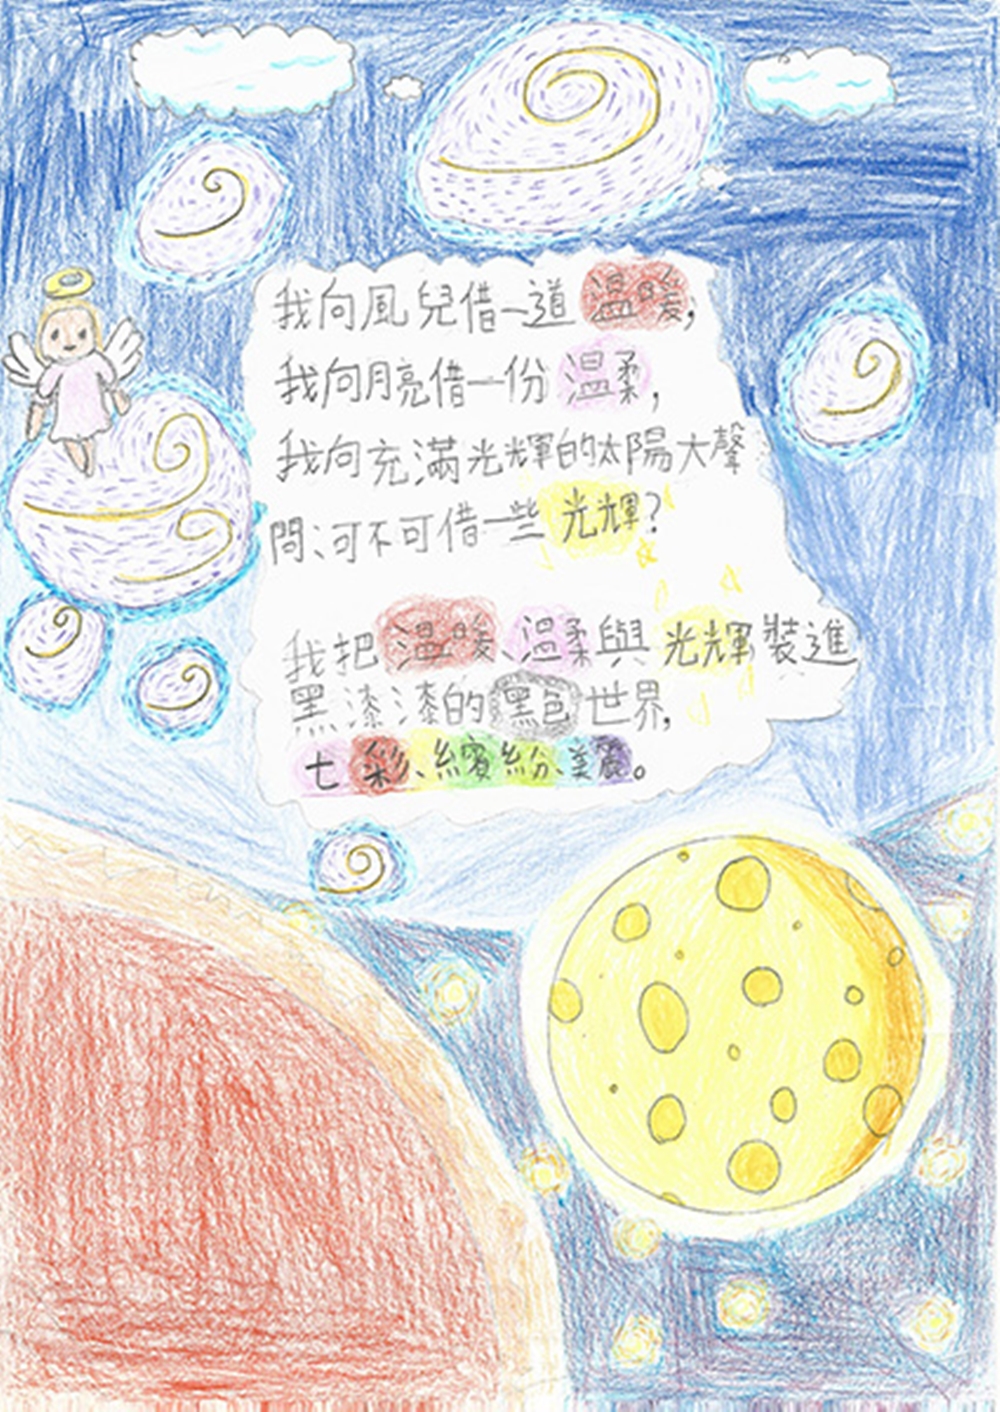 我向風兒借一道溫暖,
我向月亮借一份溫柔,
我向充滿光輝的太陽大聲
問:可不可借一些光輝?
我把溫暖、溫柔與光輝裝進
黑漆漆的黑色世界,
七彩、繽紛、美麗。